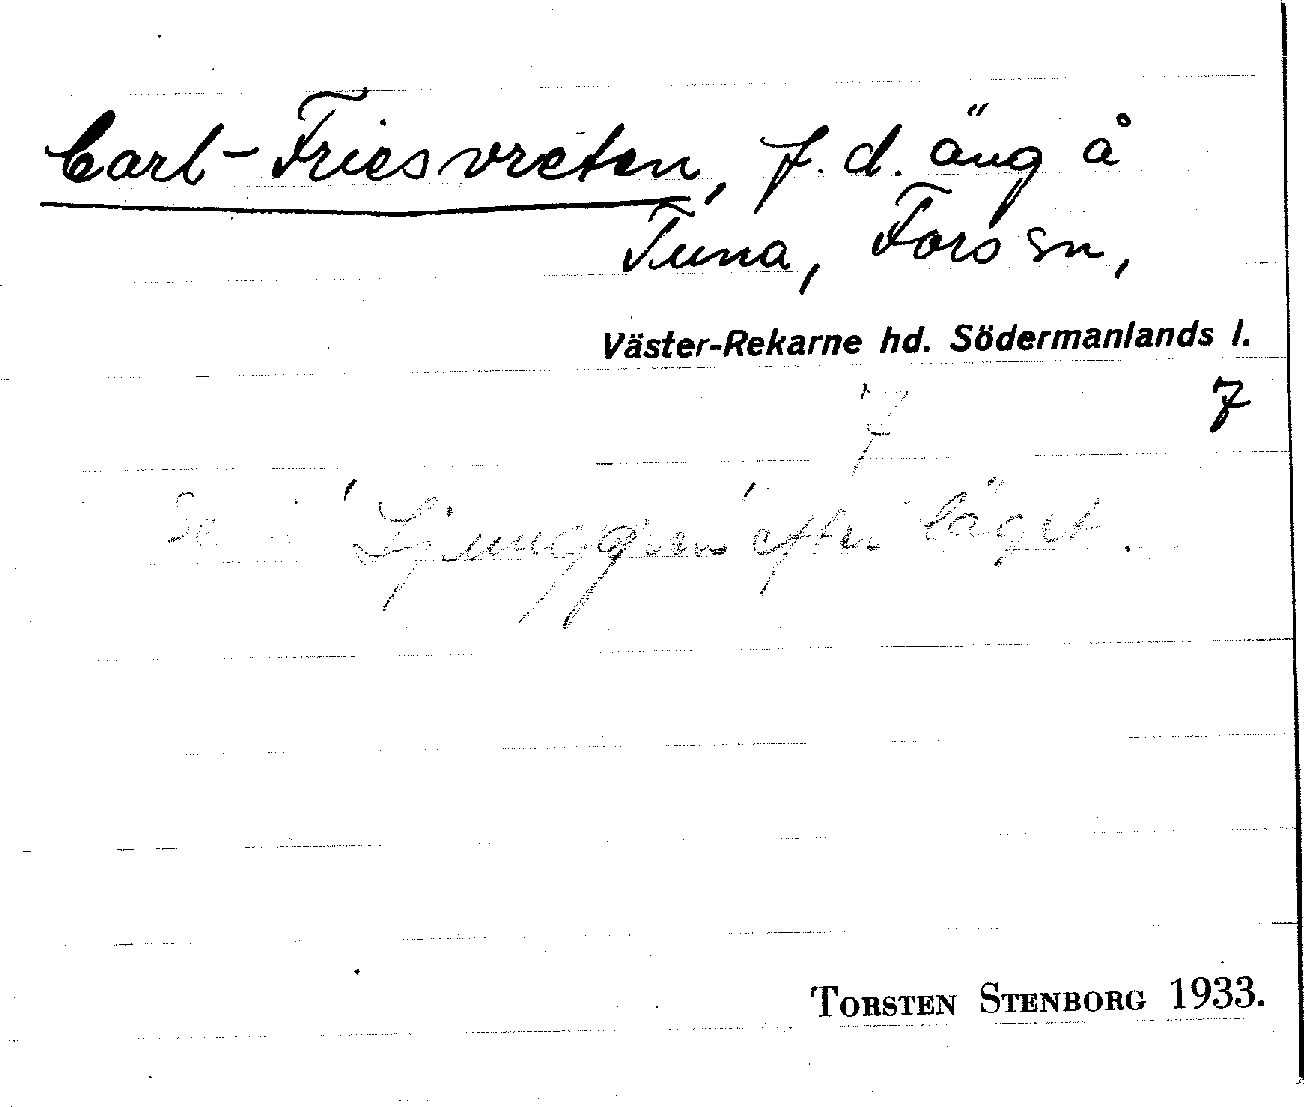 Carl-Friesvreten, f.d. äng å
Tuna, Fors sn,
Väster-Rekarne hd. Södermanlands l.
7
7
Se Ljunggren efter läget.
TORSTEN STENBORG 1933.